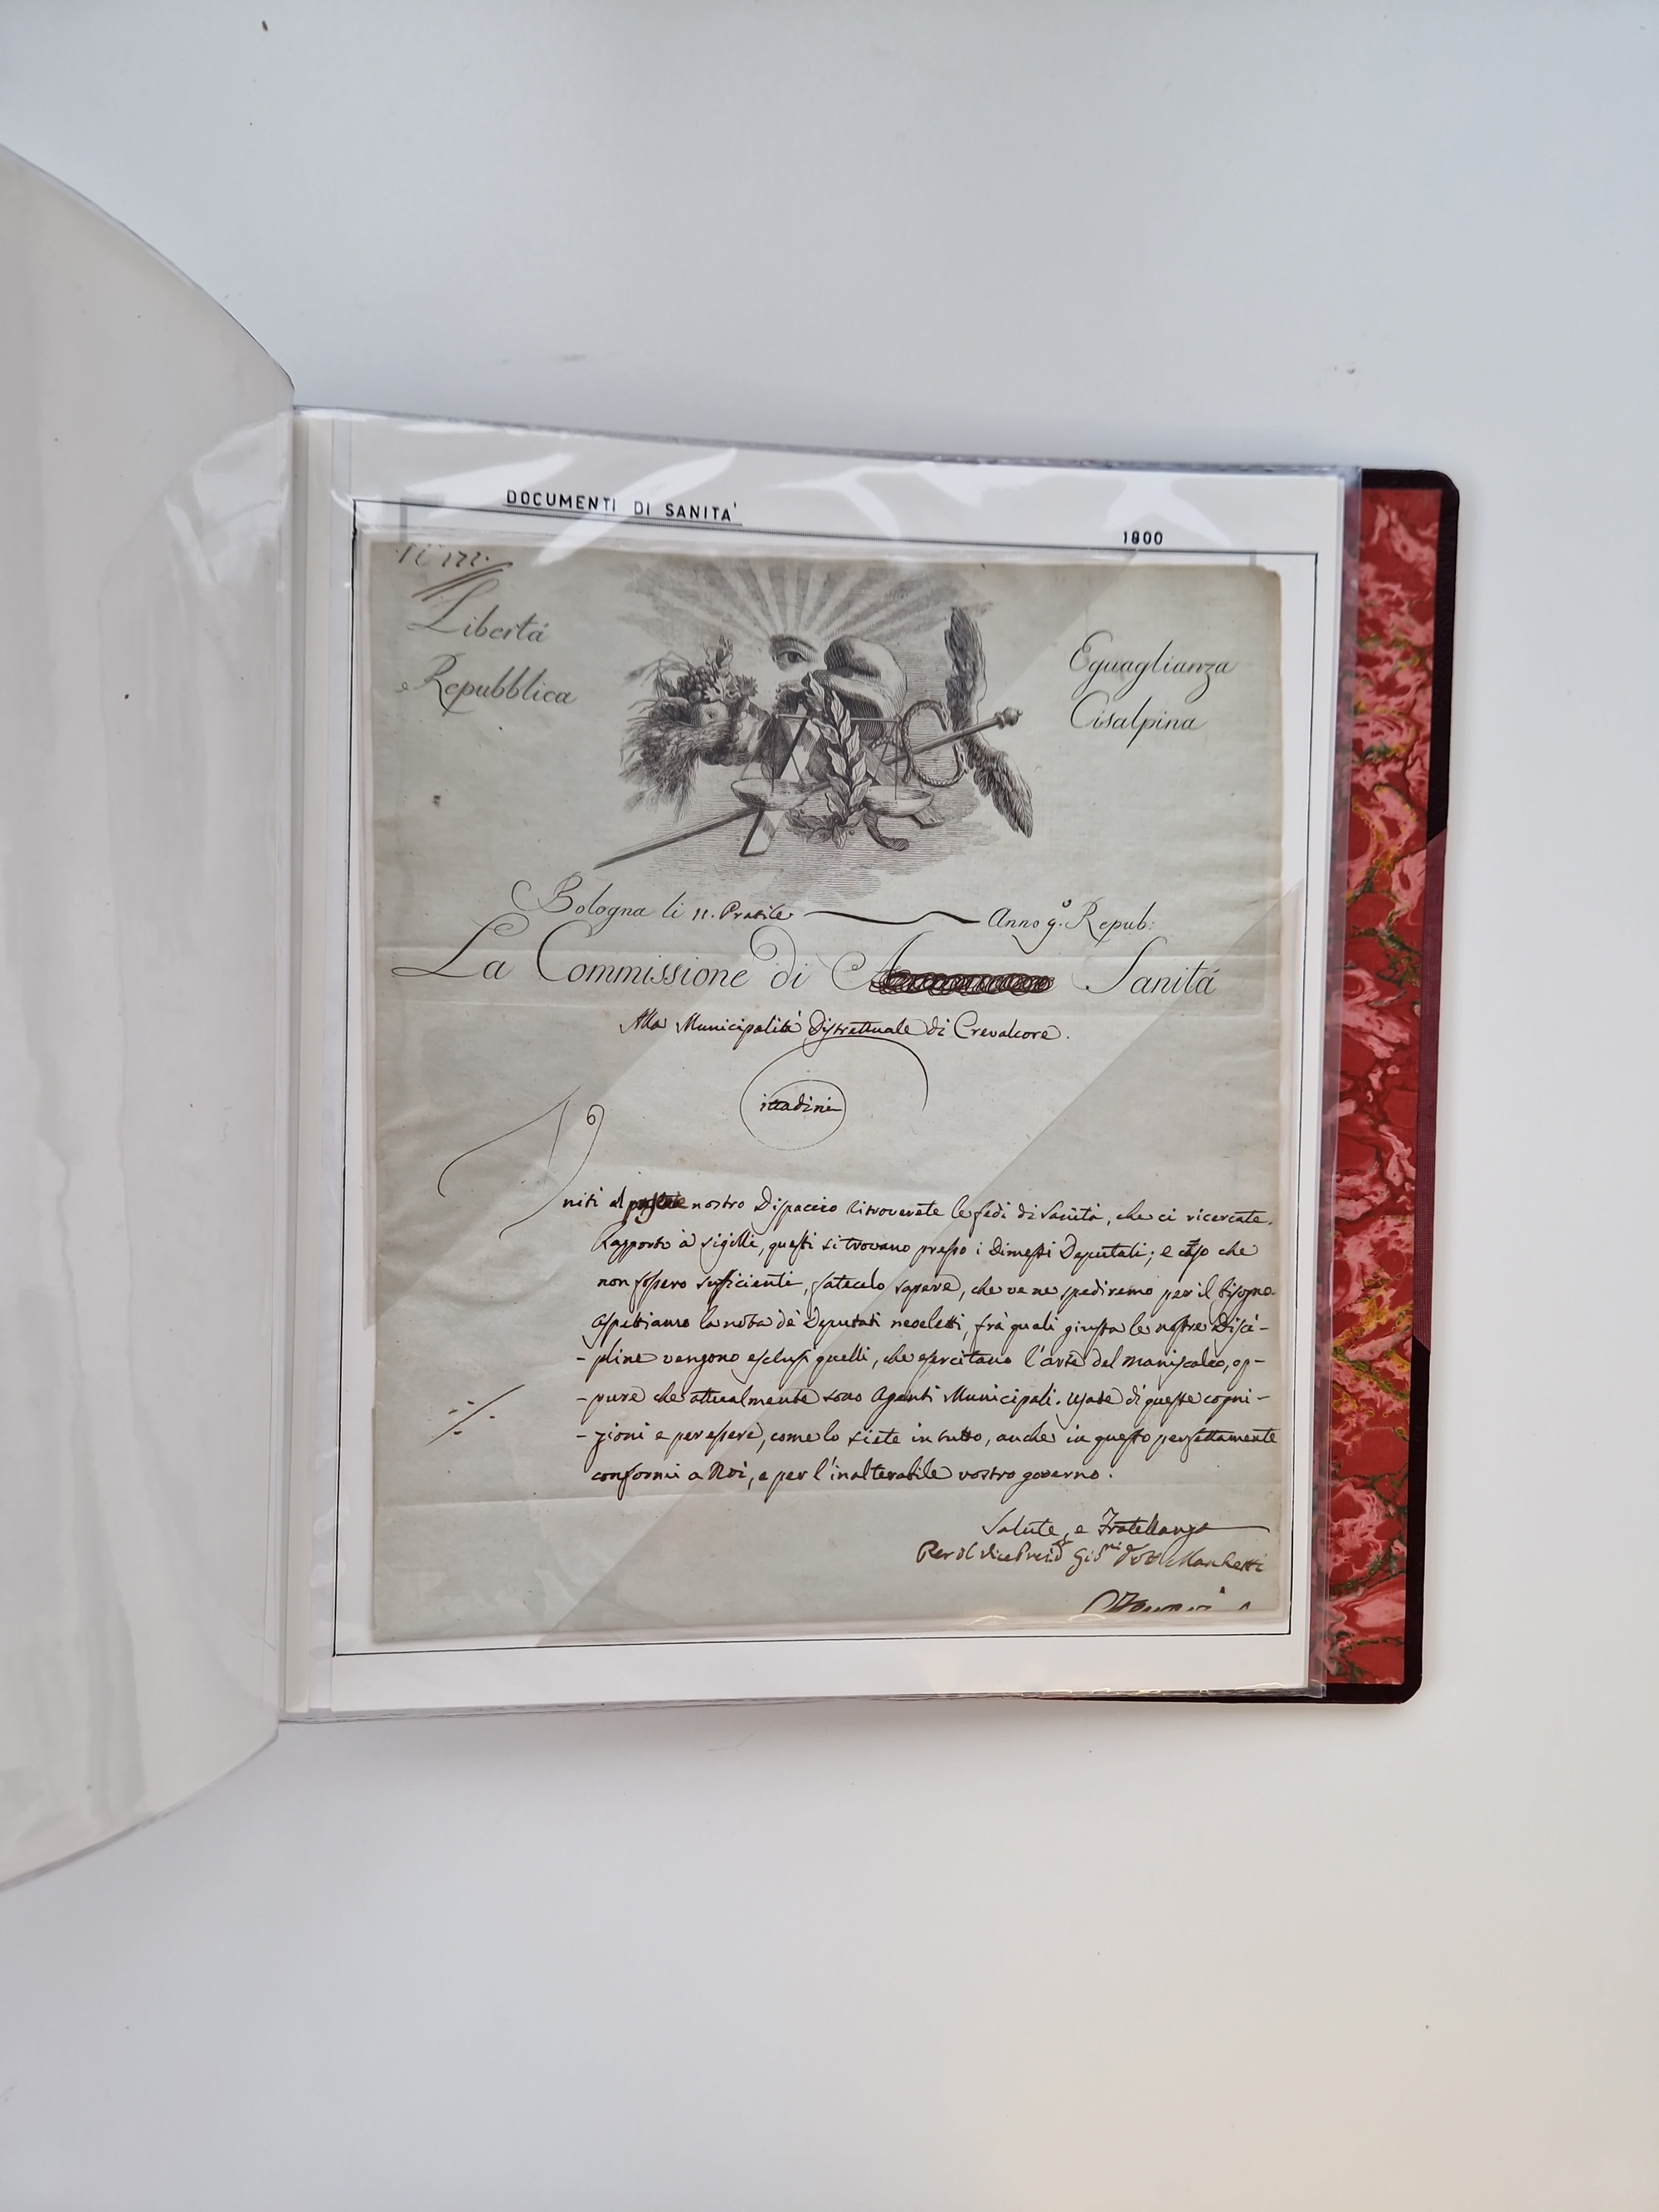 DOCUMENTI DI SANITA'
1800
Libertà
Eguaglianza
Repubblica
Cisalpina
Bologna li 11. Pratile Anno 9.º Repub:
La Commissione di Sanità
Alla Municipalità Distrettuale di Crevalcore.
Cittadini
Uniti al nostro Dispaccio ritroverete le fedi di Sanità, che ci ricercate.
Rapporto à sigilli, questi si trovano presso i dimessi Deputati; e che
non fossero sufficienti, fatecelo sapere, che ve ne spediremo per il bisogno
Aspettiamo la nota dè Deputati neoeletti, frà quali giusta le nostre Disci-
-pline vengono esclusi quelli, che esercitano l'arte del maniscalco, op-
-pure che attualmente sono Agenti Municipali. Usate di queste cogni-
-zioni e per essere, come lo siete in tutto, anche in questo perfettamente
conformi a Noi, e per l'inalterabile vostro governo.
Salute, e Fratellanza
Per il Vice Presid.